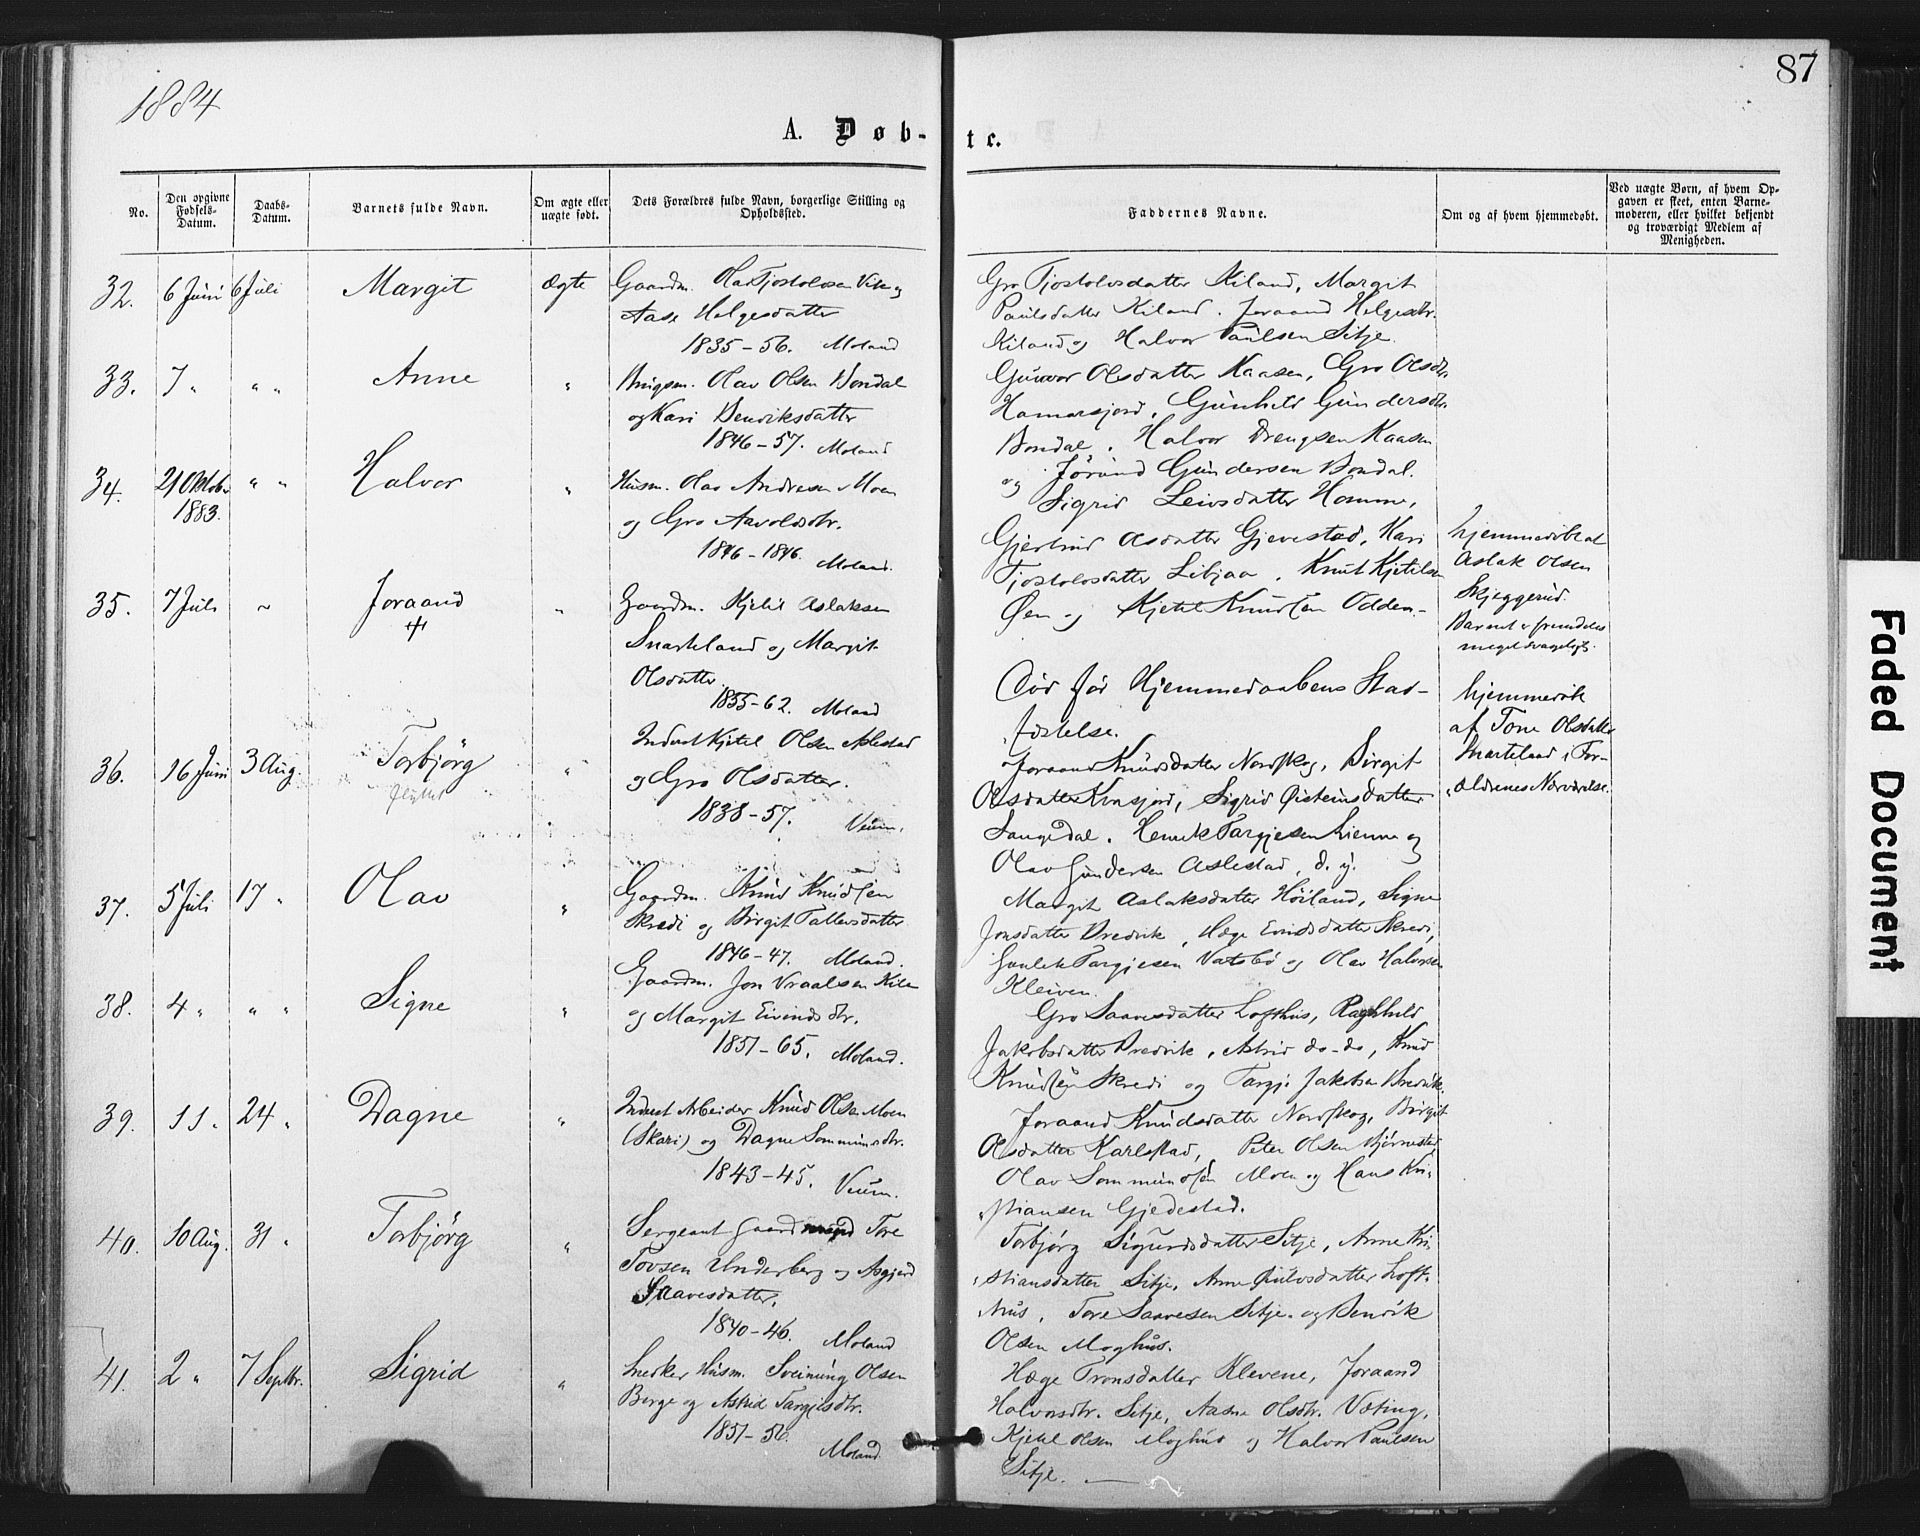 1884
87
A. Døb-
te.
No.
Den opgivne Fødsels-Datum.
Daabs-Datum.
Barnets fulde Navn.
Om ægte eller uægte født.
Dets Forældres fulde Navn, borgerlige Stilling og Opholdssted.
Faddernes Navne.
Om og af hvem hjemmedøbt.
Ved uægte Børn, af hvem Opgaven er skeet, enten Barnemoderen, eller hvilket bekjendt og troværdigt Medlem af Menigheden.
32. 6 Juni 6 Juli Margit ægte Gaardm. Olav Tjostolvsen Vik og
Aase Helgesdatter
1835-56. Moland
Gro Tjostolvsdatter Kiland, Margit
Paulsdatter Kiland. Joraand Helgesdtr.
Kiland og Halvor Paulsen Sitje.
33. 7 " " " Anne " Brugsm. Olav Olsen Bondal
og Kari Henriksdatter
1846-57. Moland
Gunvor Olsdatter Kaasen, Gro Olsdtr.
Hamarsjord, Gunhild Gundersdtr.
Bondal. Halvor Drengsen Kaasen
og Jørund Gundersen Bondal.
34. 21 Oktobr. 1883. " " Halvor " Husm. Olav Andresen Moen
og Gro Aavolsdtr.
1846-1846. Moland.
Sigrid Leivsdatter Homme,
Gjertrud Asdatter Gjevestad, Kari
Tjostolvsdatter Libjaa, Knut Kjetilsen
Øen og Kjetil Knudsen Odden.-
hjemmedøbt af
Aslak Olsen
Skjeggerud.
Barnet er fremdeles
meget svageligt.
35. 7 Juli ~ Joraand " Gaardm. Kjetil Aslaksen
Snarteland og Margit
Olsdatter
1855-62. Moland
Død før Hjemmedaabens Stad-
fæstelse.
hjemmedøbt
af Tone Olsdatter
Snarteland i For-
ældrenes Nærværelse.
36. 16 Juni 3 Aug. Torbjörg " Inderst Kjetil Olsen Aslestad
flyttet
og Gro Olsdatter.
1838-57. Veum.
Joraand Knudsdatter Nordskog, Birgit
Olsdatter Kvasjord, Sigrid Øisteinsdatter
Langedal. Henrik Targjesen Lienne og
Olav Gundersen Aslestad, d. y.
37. 5 Juli 17 " Olav " Gaardm. Knud Knudsen
Skredi og Birgit Tallevsdatter
1846-47. Moland.
Margit Aslaksdatter Høiland, Signe
Jonsdatter Bredvik, Hæge Eivindsdatter Skredi,
Gunleik Targjesen Vatsbø og Olav Halvorsen
Kleiven.
38. 4 " " " Signe " Gaardm. Jon Vraalsen Kile
og Margit Eivindsdtr.
1851-65. Moland.
Gro Saavesdatter Lofthus, Ragnhild
Jakobsdatter Bredvik, Astrid do-do, Knud
Knudsen Skredi og Targje Jakobsen Bredvik
39. 11 " 24 " Dagne " Inderst Arbeider Knud Olsen Moen
(Skari) og Dagne Sommundsdtr.
1843-45. Veum.
Joraand Knudsdatter Nordskog, Birgit
Olsdatter Karlstad, Peter Olsen Bjørnestad,
Olav Sommundsen Moen og Hans Kri-
stiansen Gjedestad.
40. 10 Aug. 31 " Torbjörg " Sergeant Gaardmand Tore
Tovsen Underberg og Asgjerd
Saavesdatter.
1840-46. Moland
Torbjörg Sigurdsdatter Sitje, Anne Kri-
stiansdatter Sitje, Anne Øulvsdatter Loft-
hus, Tore Saavesen Sitje og Henrik
Olsen Moghus.
41. 2 " 7 Septbr. Sigrid " Snedker Husm. Sveinung Olsen
Berge og Astrid Targjesdtr.
1851-56. Moland.
Hæge Tronsdatter Klevene, Joraand
Halvorsdtr. Sitje, Aasne Olsdtr. Væting,
Kjetil Olsen Moghus og Halvor Paulsen
Sitje.
Faded Document